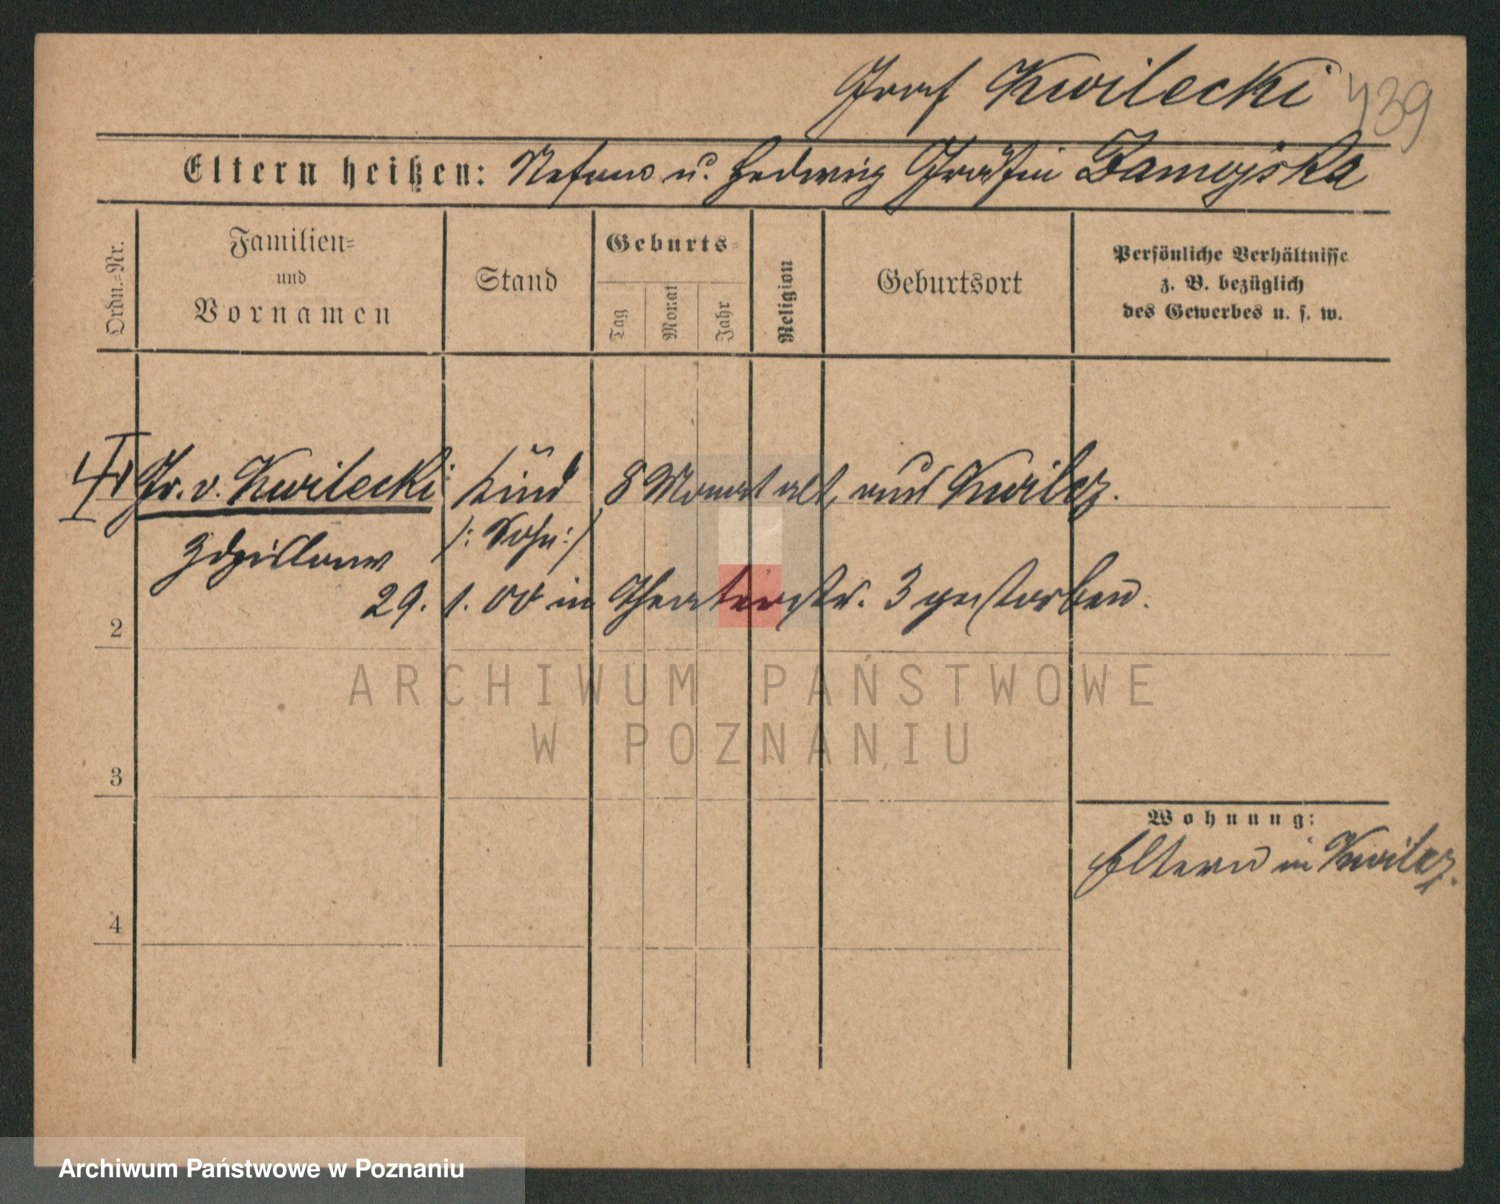 Graf Kwilecki 439
Eltern heißen: Stefan u. Hedwig Gräfin Zamojska
Ordn.-Nr.
Familien-
und
Vornamen
Stand
Geburts-
Tag
Monat
Jahr
Religion
Geburtsort
Persönliche Verhältnisse
z. B. bezüglich
des Gewerbes u. s. w.
Gr. v. Kwilecki Kind 8 Monat alt, aus Kwilcz.
Zdzislaus /: Sohn :/
29. 1. 00 in Theaterstr. 3 gestorben.
2
ARCHIWUM PAŃSTWOWE
W POZNANIU
3
Wohnung:
Eltern in Kwilcz.
4
Archiwum Państwowe w Poznaniu